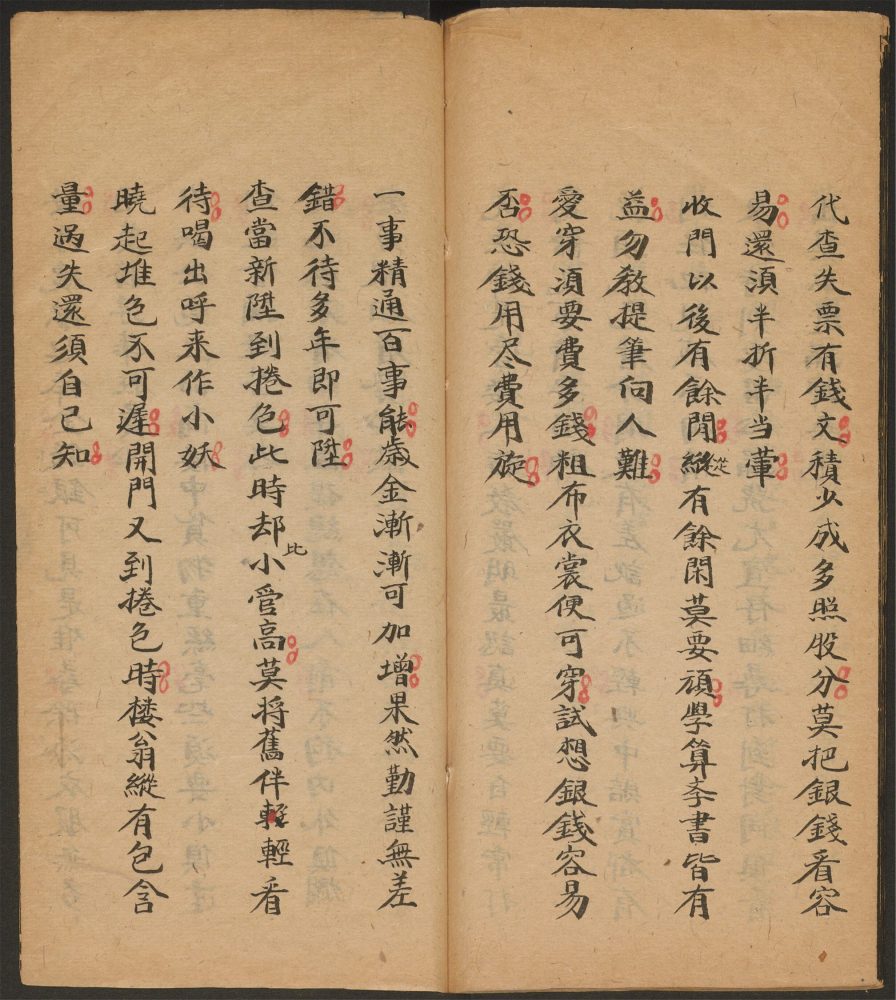 代查失票有錢文積少成多照股分莫把銀錢看容
易還須半折半当葷
收門以後有餘閒縱從有餘閑莫要頑學算李書皆有
益勿教提筆向人難
愛穿須要費多錢粗布衣裳便可穿試想銀錢容易
否恐錢用尽費用旋
一事精通百事能歲金漸漸可加增果然勤謹無差
錯不待多年即可陞
查當新陞到捲包此時却比小官高莫將舊伴輕輕看
待喝出呼来作小妖
曉起堆包不可遲開門又到捲包時楼翁縱有包含
量過失還須自己知